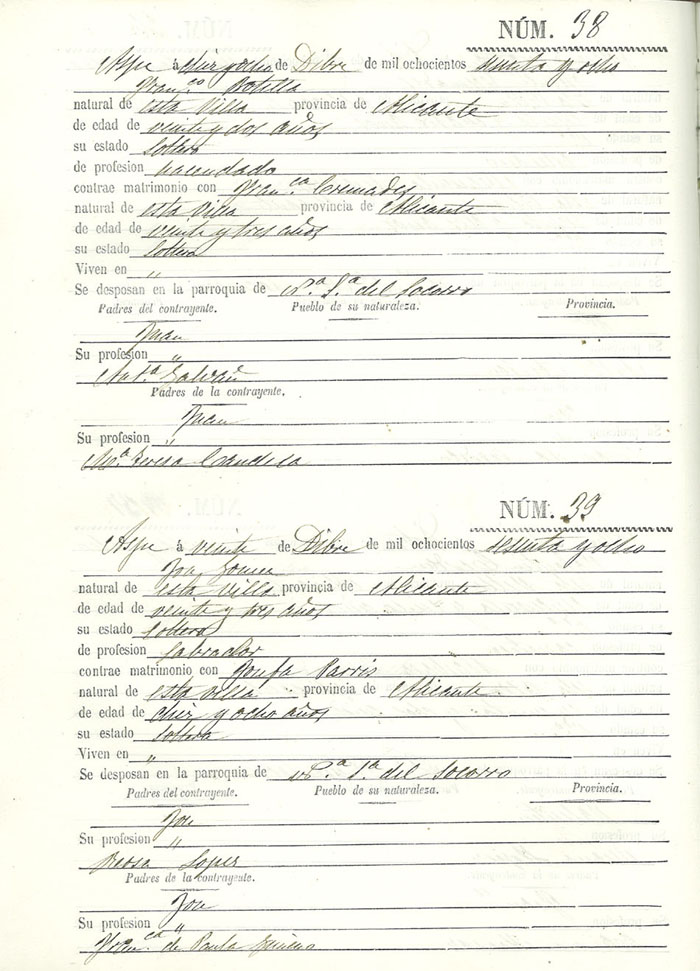 NÚM. 38
Aspe á diez y ocho de Dibre de mil ochocientos sesenta y ocho
Franco Botella
natural de esta villa provincia de Alicante
de edad de veinte y dos años
su estado soltero
de profesion hacendado
contrae matrimonio con Franca Cremades
natural de esta villa provincia de Alicante
de edad de veinte y tres años
su estado soltera
Viven en "
Se desposan en la parroquia de Na Sa del Socorro
Padres del contrayente. Pueblo de su naturaleza. Provincia.
Juan
Su profesion "
Anta Galvañ
Padres de la contrayente.
Juan
Su profesion "
Ma Teresa Candela
NÚM. 39
Aspe á veinte de Dibre de mil ochocientos sesenta y ocho
natural de esta villa provincia de Alicante
de edad de veinte y tres años
su estado soltero
de profesion labrador
contrae matrimonio con Josefa
natural de esta villa provincia de Alicante
de edad de diez y ocho años
su estado soltera
Viven en "
Se desposan en la parroquia de Na Sa del Socorro
Padres del contrayente. Pueblo de su naturaleza. Provincia.
José
Su profesion "
Lopez
Padres de la contrayente.
José
Su profesion "
Franca de Paula